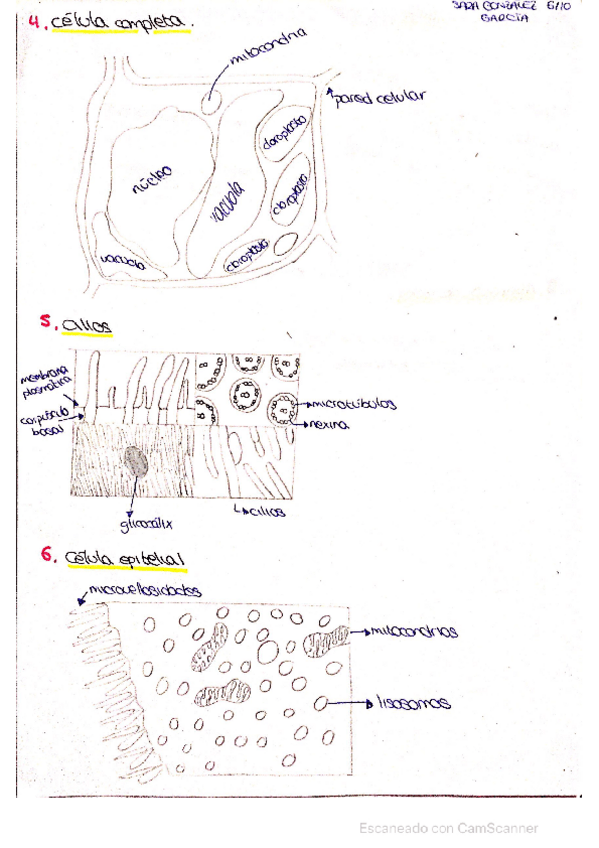 SARA GONZALEZ 6/10
GARCÍA
4. Célula completa.
mitocondria
pared celular
cloroplasto
núcleo
vacuola
cloroplasto
vacuola
cloroplasto
5. Cilios
membrana
plasmática
corpúsculo
basal
microtúbulos
nexina
cilios
glicocálix
6. Célula epitelial
microvellosidades
mitocondrias
lisosomas
Escaneado con CamScanner